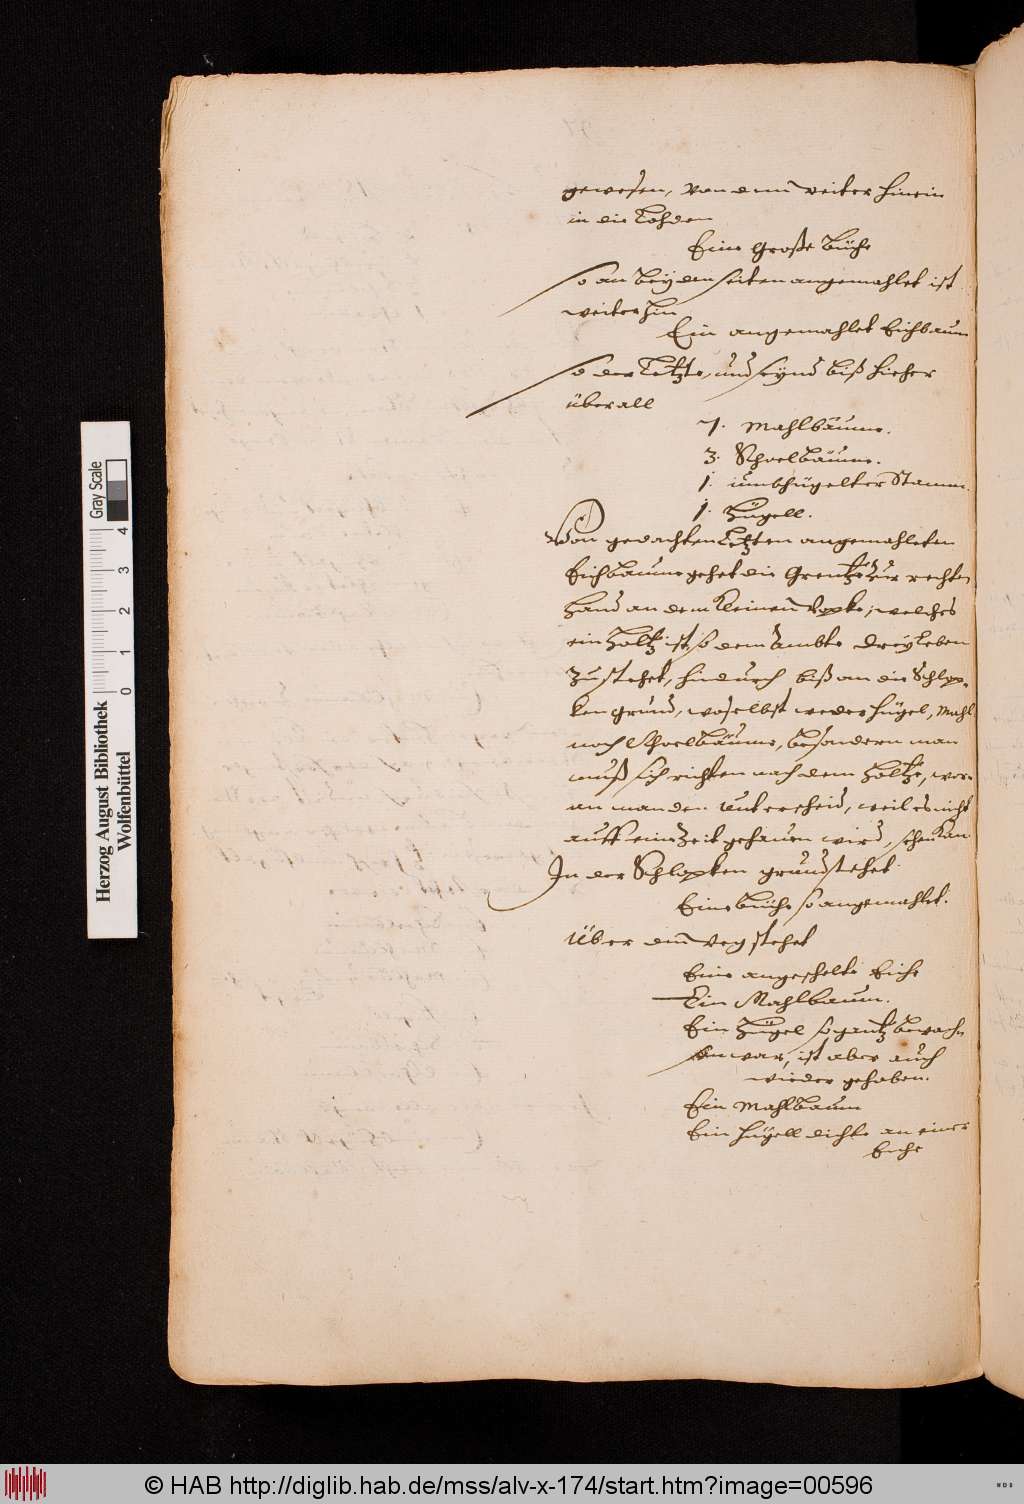 gewesen, von dem weiter hinein
in die Lohden
Eine Große Büche
so an beyden seiten angemahlet ist
weiter hin
Ein angemahlet Eichbaum
so der Letzte, und seynd biß hieher
überall
7. Mahlbäume.
3. Schoelbäume.
1. umbhügelter Stamm.
1. Hügell.
Von gedachten Letzten angemahleten
Eichbaume gehet die Grentze zur rechten
Hand an dem Kleinen welches
ein Holtz ist so dem Ambte Dreyleben
zustehet, hindurch biß an die Schlop-
ken grund, woselbst weder hügel, Mahl
noch Schoelbäume, besondern man
muß sich richten nach dem Holtze, wor-
an man den Unterscheid, weil es nicht
auff eine Zeit gehauen wird, sehen Kan.
In der Schlopken grund stehet
Eine Büche so angemahlet.
Über dem weg stehet
Eine angeschelte Eiche
Ein Mahlbaum.
Ein Hügel so gantz bewach-
sen war, ist aber auch
wieder gehaben.
Ein Mahlbaum
Ein hügell dichte an einer
Eiche
Herzog August Bibliothek
Wolfenbüttel
Gray Scale
0 1 2 3 4
© HAB http://diglib.hab.de/mss/alv-x-174/start.htm?image=00596